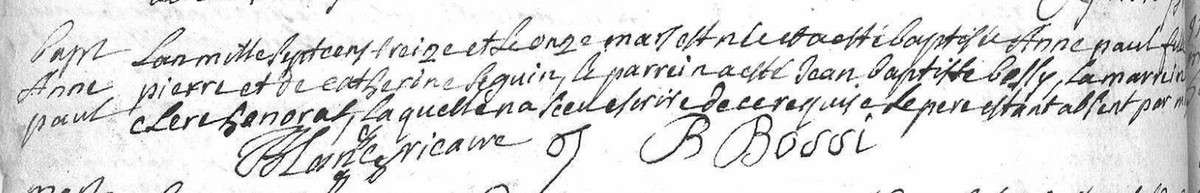 Bapt Lan mille sept cens treize et le onze mars est nee et a esté baptisée Anne paul fille
Anne pierre et de Catherine Seguin, le parrein a esté Jean baptiste bossy, la marreine
paul claere honorat, laquelle na sceu escrire de ce requise le pere estant absent par
Blanc vicaire B Bossi